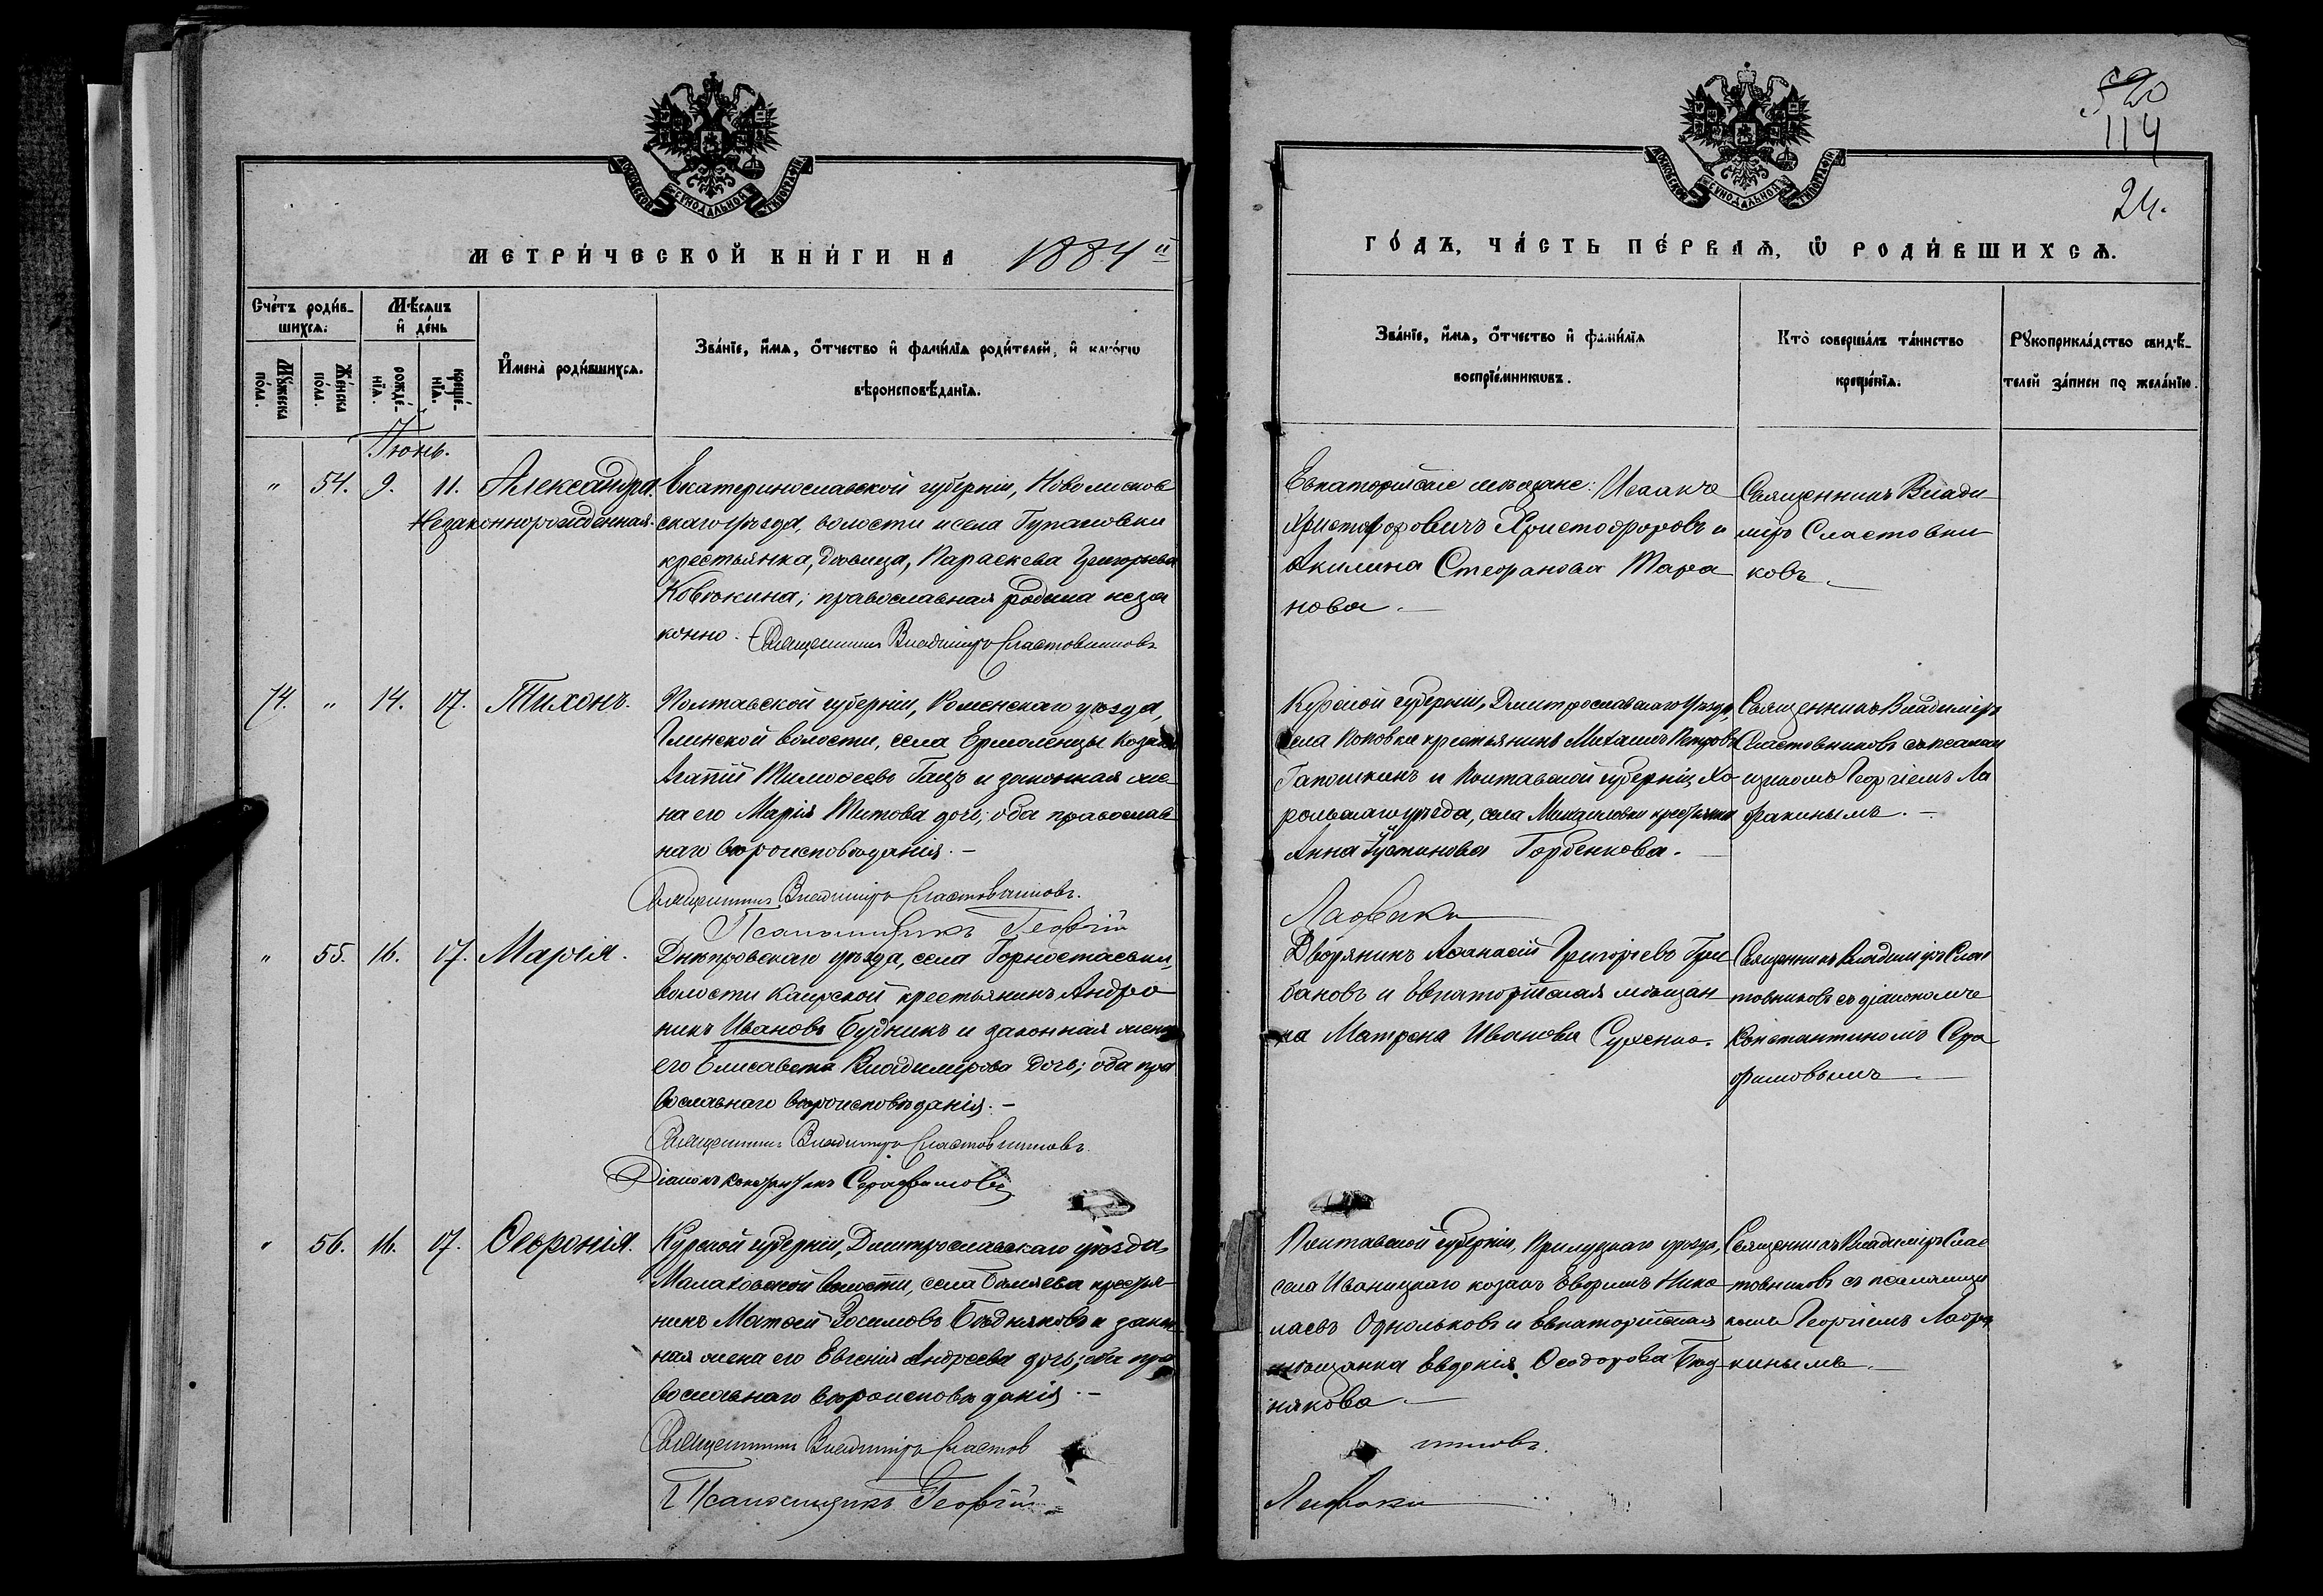 520
114
24.
МОСКОВСКОЙ СѴНОДАЛЬНОЙ ТИПОГРАФІИ
МОСКОВСКОЙ СѴНОДАЛЬНОЙ ТИПОГРАФІИ
МЕТРИ́ЧЕСКОЙ КНИ́ГИ НА 1884й
ГО́ДЪ, ЧА́СТЬ ПЕ́РВАѦ, Ѽ РОДИ́ВШИХСѦ.
Сче́тъ роди́в-
шихсѧ.
Мѣ́сяцъ
и҆ де́нь
Мꙋ́жеска по́ла.
Же́нска по́ла.
рожде́-нїѧ.
креще́-нїѧ.
И҆мена̀ роди́вшихсѧ.
Зва́нїе, и҆́мѧ, ѻ҆́тчество и҆ фами́лїѧ роди́телей, и҆ како́гѡ
вѣроисповѣ́данїѧ.
Зва́нїе, и҆́мѧ, ѻ҆́тчество и҆ фами́лїѧ
воспрїе́мникѡвъ.
Кто̀ соверша́лъ та́инство
креще́нїѧ.
Рꙋкоприкла́дство свидѣ́-
телей за́писи по жела́нїю.
Іюнь.
" 54. 9. 11. Александра.
Незаконнорожденная.
Екатеринославской губерніи, Новомосков
скаго уѣзда, волости и села Гупаловки
крестьянка, дѣвица, Параскева Григорьева
Ковтокина; православная родила неза
конно. Священникъ Владиміръ Сластовниковъ
Евпаторійскіе мѣщане: Исаакъ
Христофоровичъ Христофоровъ и
Акилина Стефанова Тара
нова.
Священникъ Влади
міръ Сластовни
ковъ.
74. " 14. 17. Тихонъ.
Полтавской губерніи, Роменскаго уѣзда,
Глинской волости, села Ермоленцы козакъ
Агапій Тимофеевъ Гацъ и законная же
на его Марія Титова дочь; оба православ
наго вѣроисповѣданія. –
Священникъ Владиміръ Сластовниковъ.
Псаломщикъ Георгій
Курской губерніи, Дмитрославскаго уѣзда,
села Поповки крестьянинъ Михаилъ Петровъ
Гапошкинъ и Полтавской губерніи, Хо
рольскаго уѣзда, села Михайловки крестьянка
Анна Іустинова Горбенкова.
Лафаки
Священникъ Владиміръ
Сластовниковъ съ псалом
щикомъ Георгіемъ Ла
факинымъ. –
" 55. 16. 17. Марія.
Днѣпровскаго уѣзда, села Горностаевки,
волости Каирской крестьянинъ Андро
никъ Ивановъ Будникъ и законная жена
его Елисавета Владимірова дочь; оба пра
вославнаго вѣроисповѣданія. –
Священникъ Владиміръ Сластовниковъ.
Діаконъ Константинъ Серафимовъ
Дворянинъ Афанасій Григорьевъ Гри
бановъ и Евпаторійская мѣщан
ка Матрона Иванова Сухенко.
Священникъ Владиміръ Слас
товниковъ съ діакономъ
Константиномъ Сера
фимовымъ
" 56. 16. 17. Ѳефронія.
Курской губерніи, Дмитрославскаго уѣзда,
Малаховской волости, села Бѣляева крестья
нинъ Матфей Зосимовъ Бѣдняковъ и закон
ная жена его Евгенія Андреева дочь; оба пра
вославнаго вѣроисповѣданія. –
Священникъ Владиміръ Сластов
Псаломщикъ Георгій
Полтавской губерніи, Прилуцкаго уѣзда,
села Иваницкаго козакъ Ефимъ Нико
лаевъ Однольковъ и Евпаторійская
мѣщанка Евдокія Ѳеодорова Бѣд
някова.
никовъ.
Лафаки
Священникъ Владиміръ Слас
товниковъ съ псаломщи
комъ Георгіемъ Лафа
кинымъ.